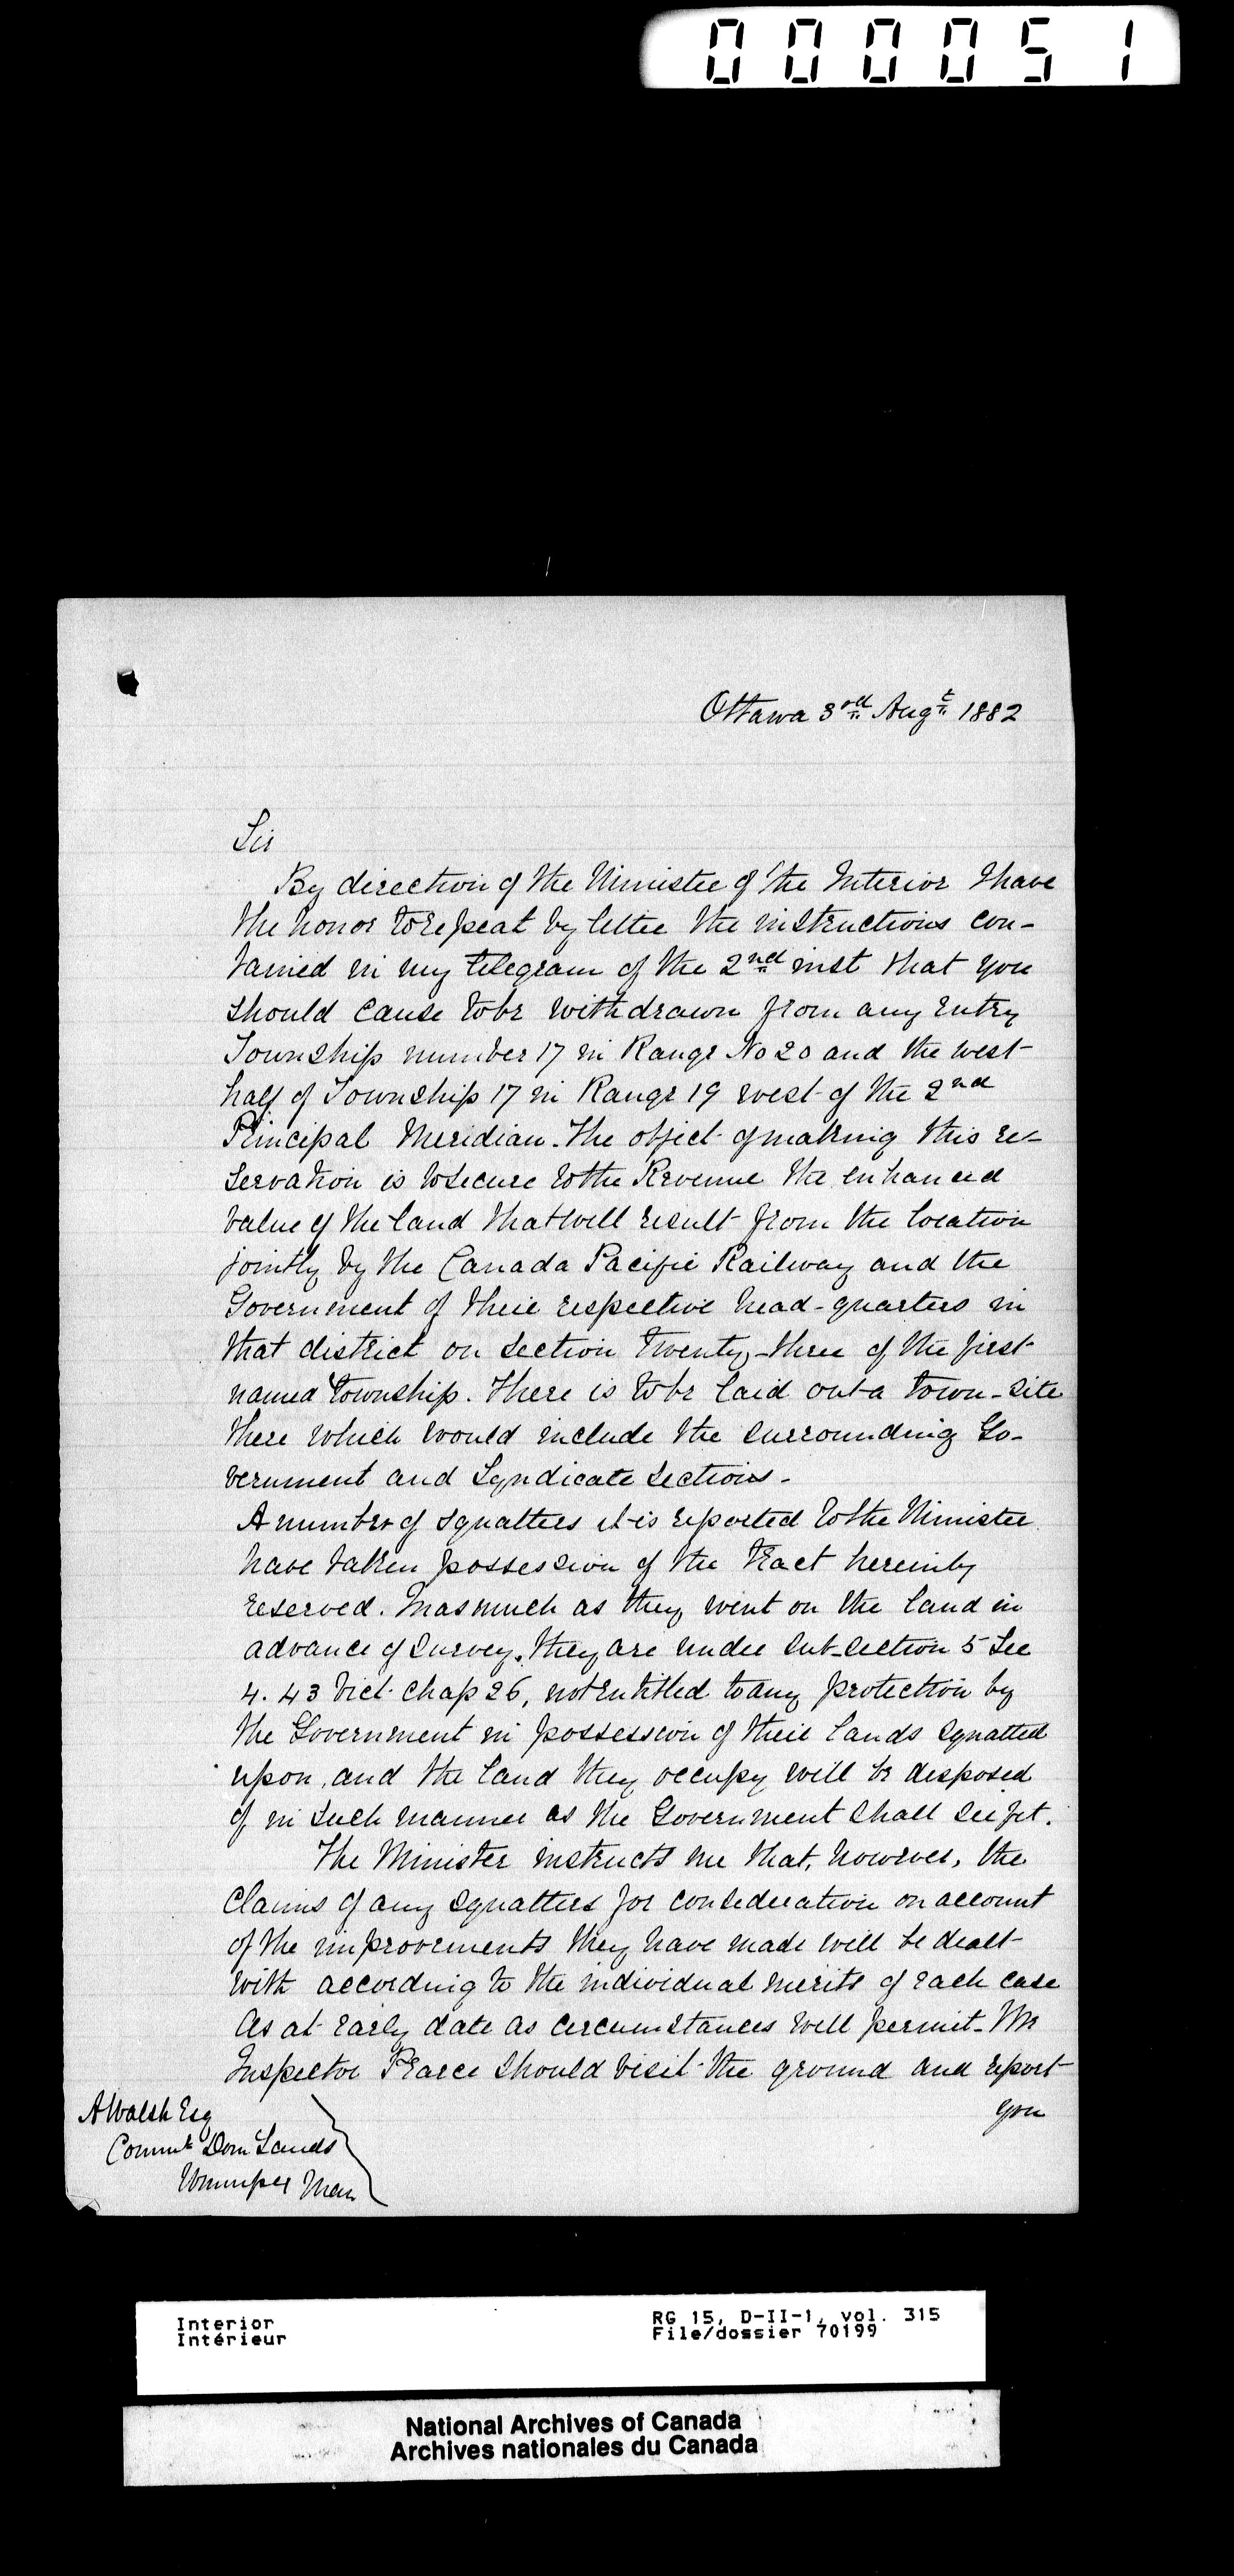 000051
Ottawa 3rd Augt 1882
Sir
By direction of the Minister of the Interior I have
the honor to repeat by letter the instructions con-
tained in my telegram of the 2nd inst that you
should cause to be withdrawn from any entry
Township number 17 in Range No 20 and the west
half of Township 17 in Range 19 west of the 2nd
Principal Meridian. The object of making this re-
servation is to secure to the Revenue the enhanced
value of the land that will result from the location
jointly by the Canada Pacific Railway and the
Government of their respective head-quarters in
that district on section twenty-three of the first
named township. There is to be laid out a town-site
there which would include the surrounding Go-
vernment and Syndicate sections-
A number of squatters it is reported to the Minister
have taken possession of the tract hereinby
reserved. Inasmuch as they went on the land in
advance of survey, they are under sub-section 5 Sec
4. 43 Vict. Chap 26, not entitled to any protection by
the Government in possession of their lands squatted
upon, and the land they occupy will be disposed
of in such manner as the Government shall see fit.
The Minister instructs me that, however, the
claims of any squatters for consideration on account
of the improvements they have made will be dealt
with according to the individual merits of each case
As at early date as circumstances will permit. Mr
Inspector Pearce should visit the ground and report
you
A Walsh Esq
Commr Dom Lands
Winnipeg Man
Interior
Intérieur
RG 15, D-II-1, vol. 315
File/dossier 70199
National Archives of Canada
Archives nationales du Canada